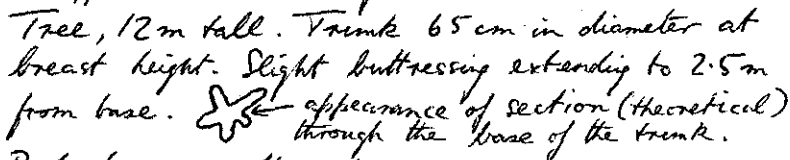 Tree, 12 m tall. Trunk 65 cm in diameter at
breast height. Slight buttressing extending to 2.5 m
from base. appearance of section (theoretical)
through the base of the trunk.